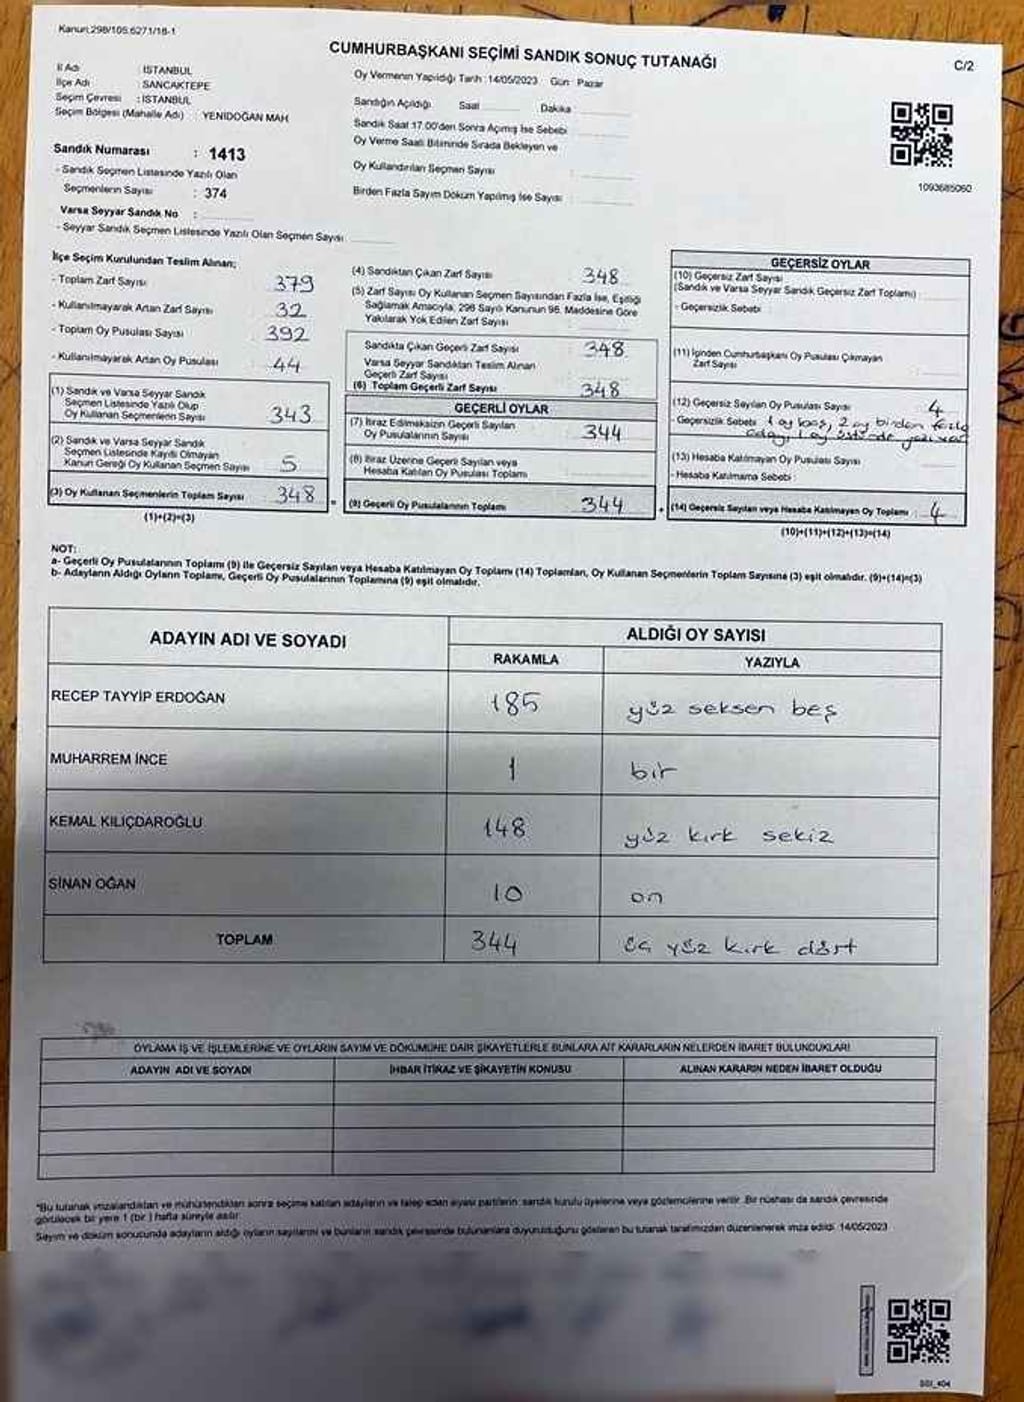 Kanun:298/105,6271/18-1
CUMHURBAŞKANI SEÇİMİ SANDIK SONUÇ TUTANAĞI
C/2
İl Adı : İSTANBUL
İlçe Adı : SANCAKTEPE
Seçim Çevresi : İSTANBUL
Seçim Bölgesi (Mahalle Adı) : YENİDOĞAN MAH
Oy Vermenin Yapıldığı Tarih :14/05/2023 Gün : Pazar
Sandığın Açıldığı Saat Dakika
Sandık Saat 17.00'den Sonra Açımış İse Sebebi
Oy Verme Saati Bitiminde Sırada Bekleyen ve
Oy Kullandırılan Seçmen Sayısı :
Birden Fazla Sayım Döküm Yapılmış İse Sayısı :
1093685060
Sandık Numarası : 1413
- Sandık Seçmen Listesinde Yazılı Olan
Seçmenlerin Sayısı : 374
Varsa Seyyar Sandık No :
- Seyyar Sandık Seçmen Listesinde Yazılı Olan Seçmen Sayısı
İlçe Seçim Kurulundan Teslim Alınan;
- Toplam Zarf Sayısı : 379
- Kullanılmayarak Artan Zarf Sayısı : 32
- Toplam Oy Pusulası Sayısı : 392
- Kullanılmayarak Artan Oy Pusulası : 44
(1) Sandık ve Varsa Seyyar Sandık
Seçmen Listesinde Yazılı Olup
Oy Kullanan Seçmenlerin Sayısı : 343
(2) Sandık ve Varsa Seyyar Sandık
Seçmen Listesinde Kaydı Olmayan
Kanun Gereği Oy Kullanan Seçmen Sayısı 5
(3) Oy Kullanan Seçmenlerin Toplam Sayısı 348
(1)+(2)=(3)
(4) Sandıktan Çıkan Zarf Sayısı : 348
(5) Zarf Sayısı Oy Kullanan Seçmen Sayısından Fazla İse, Eşitliği
Sağlamak Amacıyla, 298 Sayılı Kanunun 98. Maddesine Göre
Yakılarak Yok Edilen Zarf Sayısı :
Sandıkta Çıkan Geçerli Zarf Sayısı : 348
Varsa Seyyar Sandıktan Teslim Alınan
Geçerli Zarf Sayısı :
(6) Toplam Geçerli Zarf Sayısı : 348
GEÇERLİ OYLAR
(7) İtiraz Edilmeksizin Geçerli Sayılan
Oy Pusulalarının Sayısı : 344
(8) İtiraz Üzerine Geçerli Sayılan veya
Hesaba Katılan Oy Pusulası Toplamı :
(9) Geçerli Oy Pusulalarının Toplamı : 344
GEÇERSİZ OYLAR
(10) Geçersiz Zarf Sayısı
(Sandık ve Varsa Seyyar Sandık Geçersiz Zarf Toplamı) :
- Geçersizlik Sebebi :
(11) İçinden Cumhurbaşkanı Oy Pusulası Çıkmayan
Zarf Sayısı :
(12) Geçersiz Sayılan Oy Pusulası Sayısı : 4
- Geçersizlik Sebebi : 1 oy boş, 2 oy birden fazla
aday, 1 oy üstünde yazı var
(13) Hesaba Katılmayan Oy Pusulası Sayısı :
- Hesaba Katılmama Sebebi :
(14) Geçersiz Sayılan veya Hesaba Katılmayan Oy Toplamı : 4
(10)+(11)+(12)+(13)=(14)
NOT:
a- Geçerli Oy Pusulalarının Toplamı (9) ile Geçersiz Sayılan veya Hesaba Katılmayan Oy Toplamı (14) Toplamları, Oy Kullanan Seçmenlerin Toplam Sayısına (3) eşit olmalıdır. (9)+(14)=(3)
b- Adayların Aldığı Oyların Toplamı, Geçerli Oy Pusulalarının Toplamına (9) eşit olmalıdır.
ADAYIN ADI VE SOYADI
ALDIĞI OY SAYISI
RAKAMLA YAZIYLA
RECEP TAYYİP ERDOĞAN 185 yüz seksen beş
MUHARREM İNCE 1 bir
KEMAL KILIÇDAROĞLU 148 yüz kırk sekiz
SİNAN OĞAN 10 on
TOPLAM 344 üç yüz kırk dört
OYLAMA İŞ VE İŞLEMLERİNE VE OYLARIN SAYIM VE DÖKÜMÜNE DAİR ŞİKAYETLERLE BUNLARA AİT KARARLARIN NELERDEN İBARET BULUNDUKLARI
ADAYIN ADI VE SOYADI İHBAR İTİRAZ VE ŞİKAYETİN KONUSU ALINAN KARARIN NEDEN İBARET OLDUĞU
*Bu tutanak imzalandıktan ve mühürlendikten sonra seçime katılan adayların ve talep eden siyasi partilerin sandık kurulu üyelerine veya gözlemcilerine verilir. Bir nüshası da sandık çevresinde
görülecek bir yere 1 (bir) hafta süreyle asılır.
Sayım ve döküm sonucunda adayların aldığı oyların sayılarını ve bunların sandık çevresinde bulunanlara duyurulduğunu gösteren bu tutanak tarafımızdan düzenlenerek imza edildi. 14/05/2023